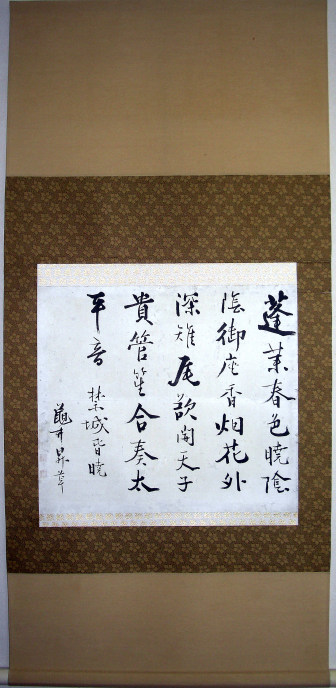 蓬莱春色曉陰
陰御座香烟花外
深雉尾欲開天子
貴管笙合奏太
平音 禁城春曉
龜井草